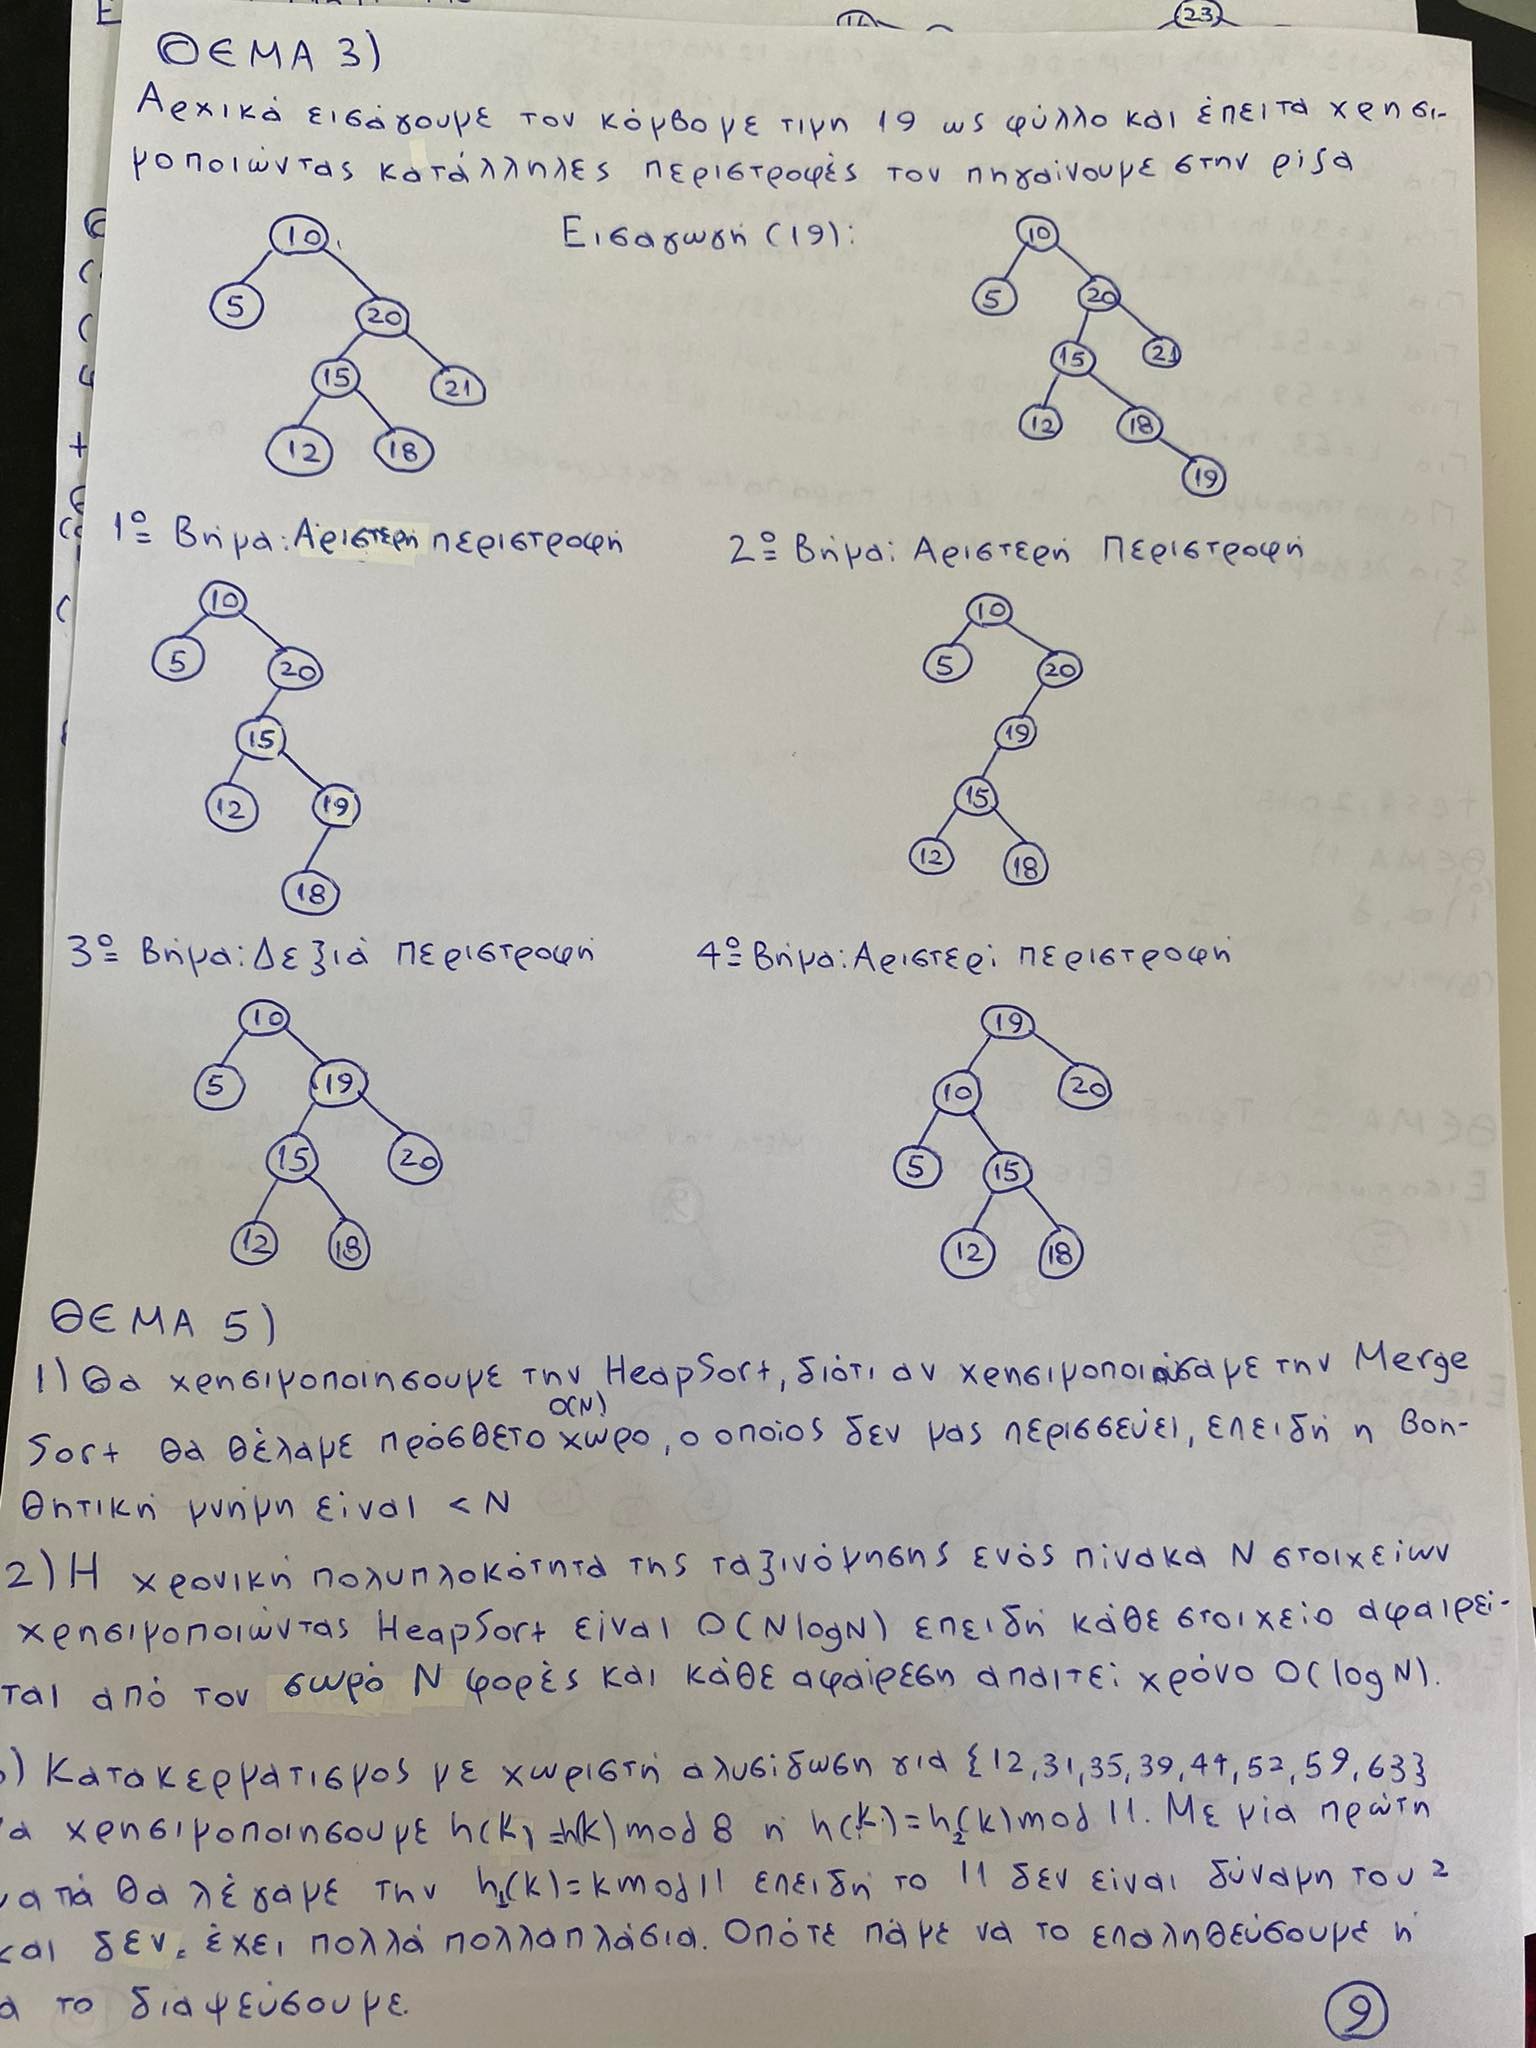 14 23
ΘΕΜΑ 3)
Αρχικά εισάγουμε τον κόμβο με τιμη 19 ως φύλλο και έπειτα χρησι-
μοποιώντας κατάλληλες περιστροφές τον πηγαίνουμε στην ρίζα
Εισαγωγή (19):
10 10
5 20 5 20
15 21 15 21
12 18 12 18
19
1ο Βήμα: Αριστερή περιστροφή 2ο Βήμα: Αριστερή Περιστροφή
10 10
5 20 5 20
15 19
12 19 15
18 12 18
3ο Βήμα: Δεξιά περιστροφή 4ο Βήμα: Αριστερι περιστροφή
10 19
5 19 10 20
15 20 5 15
12 18 12 18
ΘΕΜΑ 5)
1) Θα χρησιμοποιησουμε την HeapSort, διότι αν χρησιμοποιούσαμε την Merge
Sort θα θέλαμε πρόσθετο O(N) χωρο, ο οποίος δεν μας περισσεύει, επειδή η βοη-
θητική μνήμη είναι < N
2) Η χρονική πολυπλοκότητα της ταξινόμησης ενός πίνακα N στοιχείων
χρησιμοποιώντας HeapSort είναι O(NlogN) επειδή κάθε στοιχείο αφαιρεί-
ται από τον σωρό N φορές και κάθε αφαίρεση απαιτεί χρόνο O(logN).
) Κατακερματισμος με χωριστή αλυσίδωση για {12,31,35,39,44,52,59,63}
α χρησιμοποιησουμε h(k)=h(k)mod 8 ή h(k)=h2(k)mod 11. Με μία πρώτη
ματιά θα λέγαμε την h2(k)=kmod11 επειδή το 11 δεν είναι δύναμη του 2
και δεν έχει πολλά πολλαπλάσια. Οπότε πάμε να το επαληθεύσουμε ή
α το διαψεύσουμε.
9